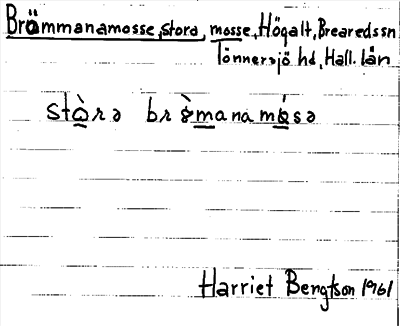 Brämmanamosse, stora, mosse, Högalt, Breareds sn
Tönnersjö hd, Hall. län
stò̱rə brò̱m̱anamó̱sə
Harriet Bengtson 1961